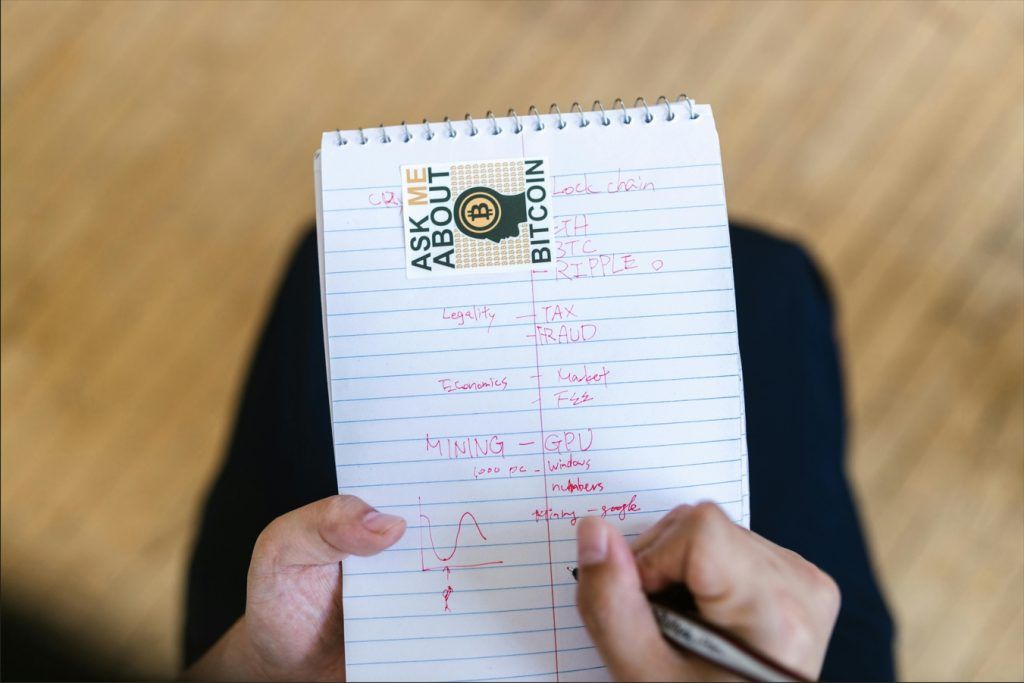 ASK ME
ABOUT
BITCOIN
lock chain
TH
BTC
RIPPLE
Legality - TAX
- FRAUD
Economics - Market
- FEE
MINING - GPU
1,000 pc - windows
numbers
Mining - google